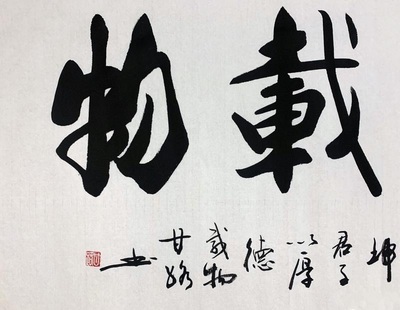 載物
坤
君子
以厚
德
載物
甘
书